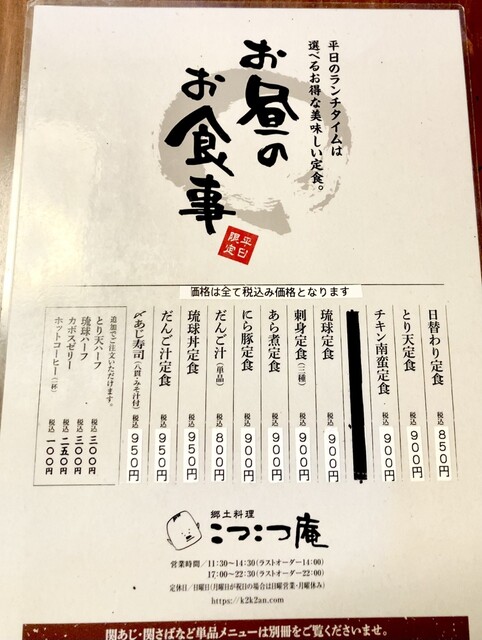 平日のランチタイムは
選べるお得な美味しい定食。
お昼の
お食事
平日
限定
価格は全て税込み価格となります
日替わり定食 税込 850円
とり天定食 税込 900円
チキン南蛮定食 税込 900円
琉球定食 税込 900円
刺身定食(三種) 税込 900円
あら煮定食 税込 900円
にら豚定食 税込 900円
だんご汁(単品) 税込 800円
琉球丼定食 税込 950円
だんご汁定食 税込 950円
〆あじ寿司(八貫・みそ汁付) 税込 950円
追加でご注文いただけます。
とり天ハーフ 税込 三〇〇円
琉球ハーフ 税込 三〇〇円
カボスゼリー 税込 二五〇円
ホットコーヒー(一杯) 税込 一〇〇円
郷土料理
こつこつ庵
営業時間/11:30~14:30(ラストオーダー14:00)
17:00~22:30(ラストオーダー22:00)
定休日/日曜日(月曜日が祝日の場合は日曜営業・月曜休み)
https://k2k2an.com/
関あじ・関さばなど単品メニューは別冊をご覧くださいませ。